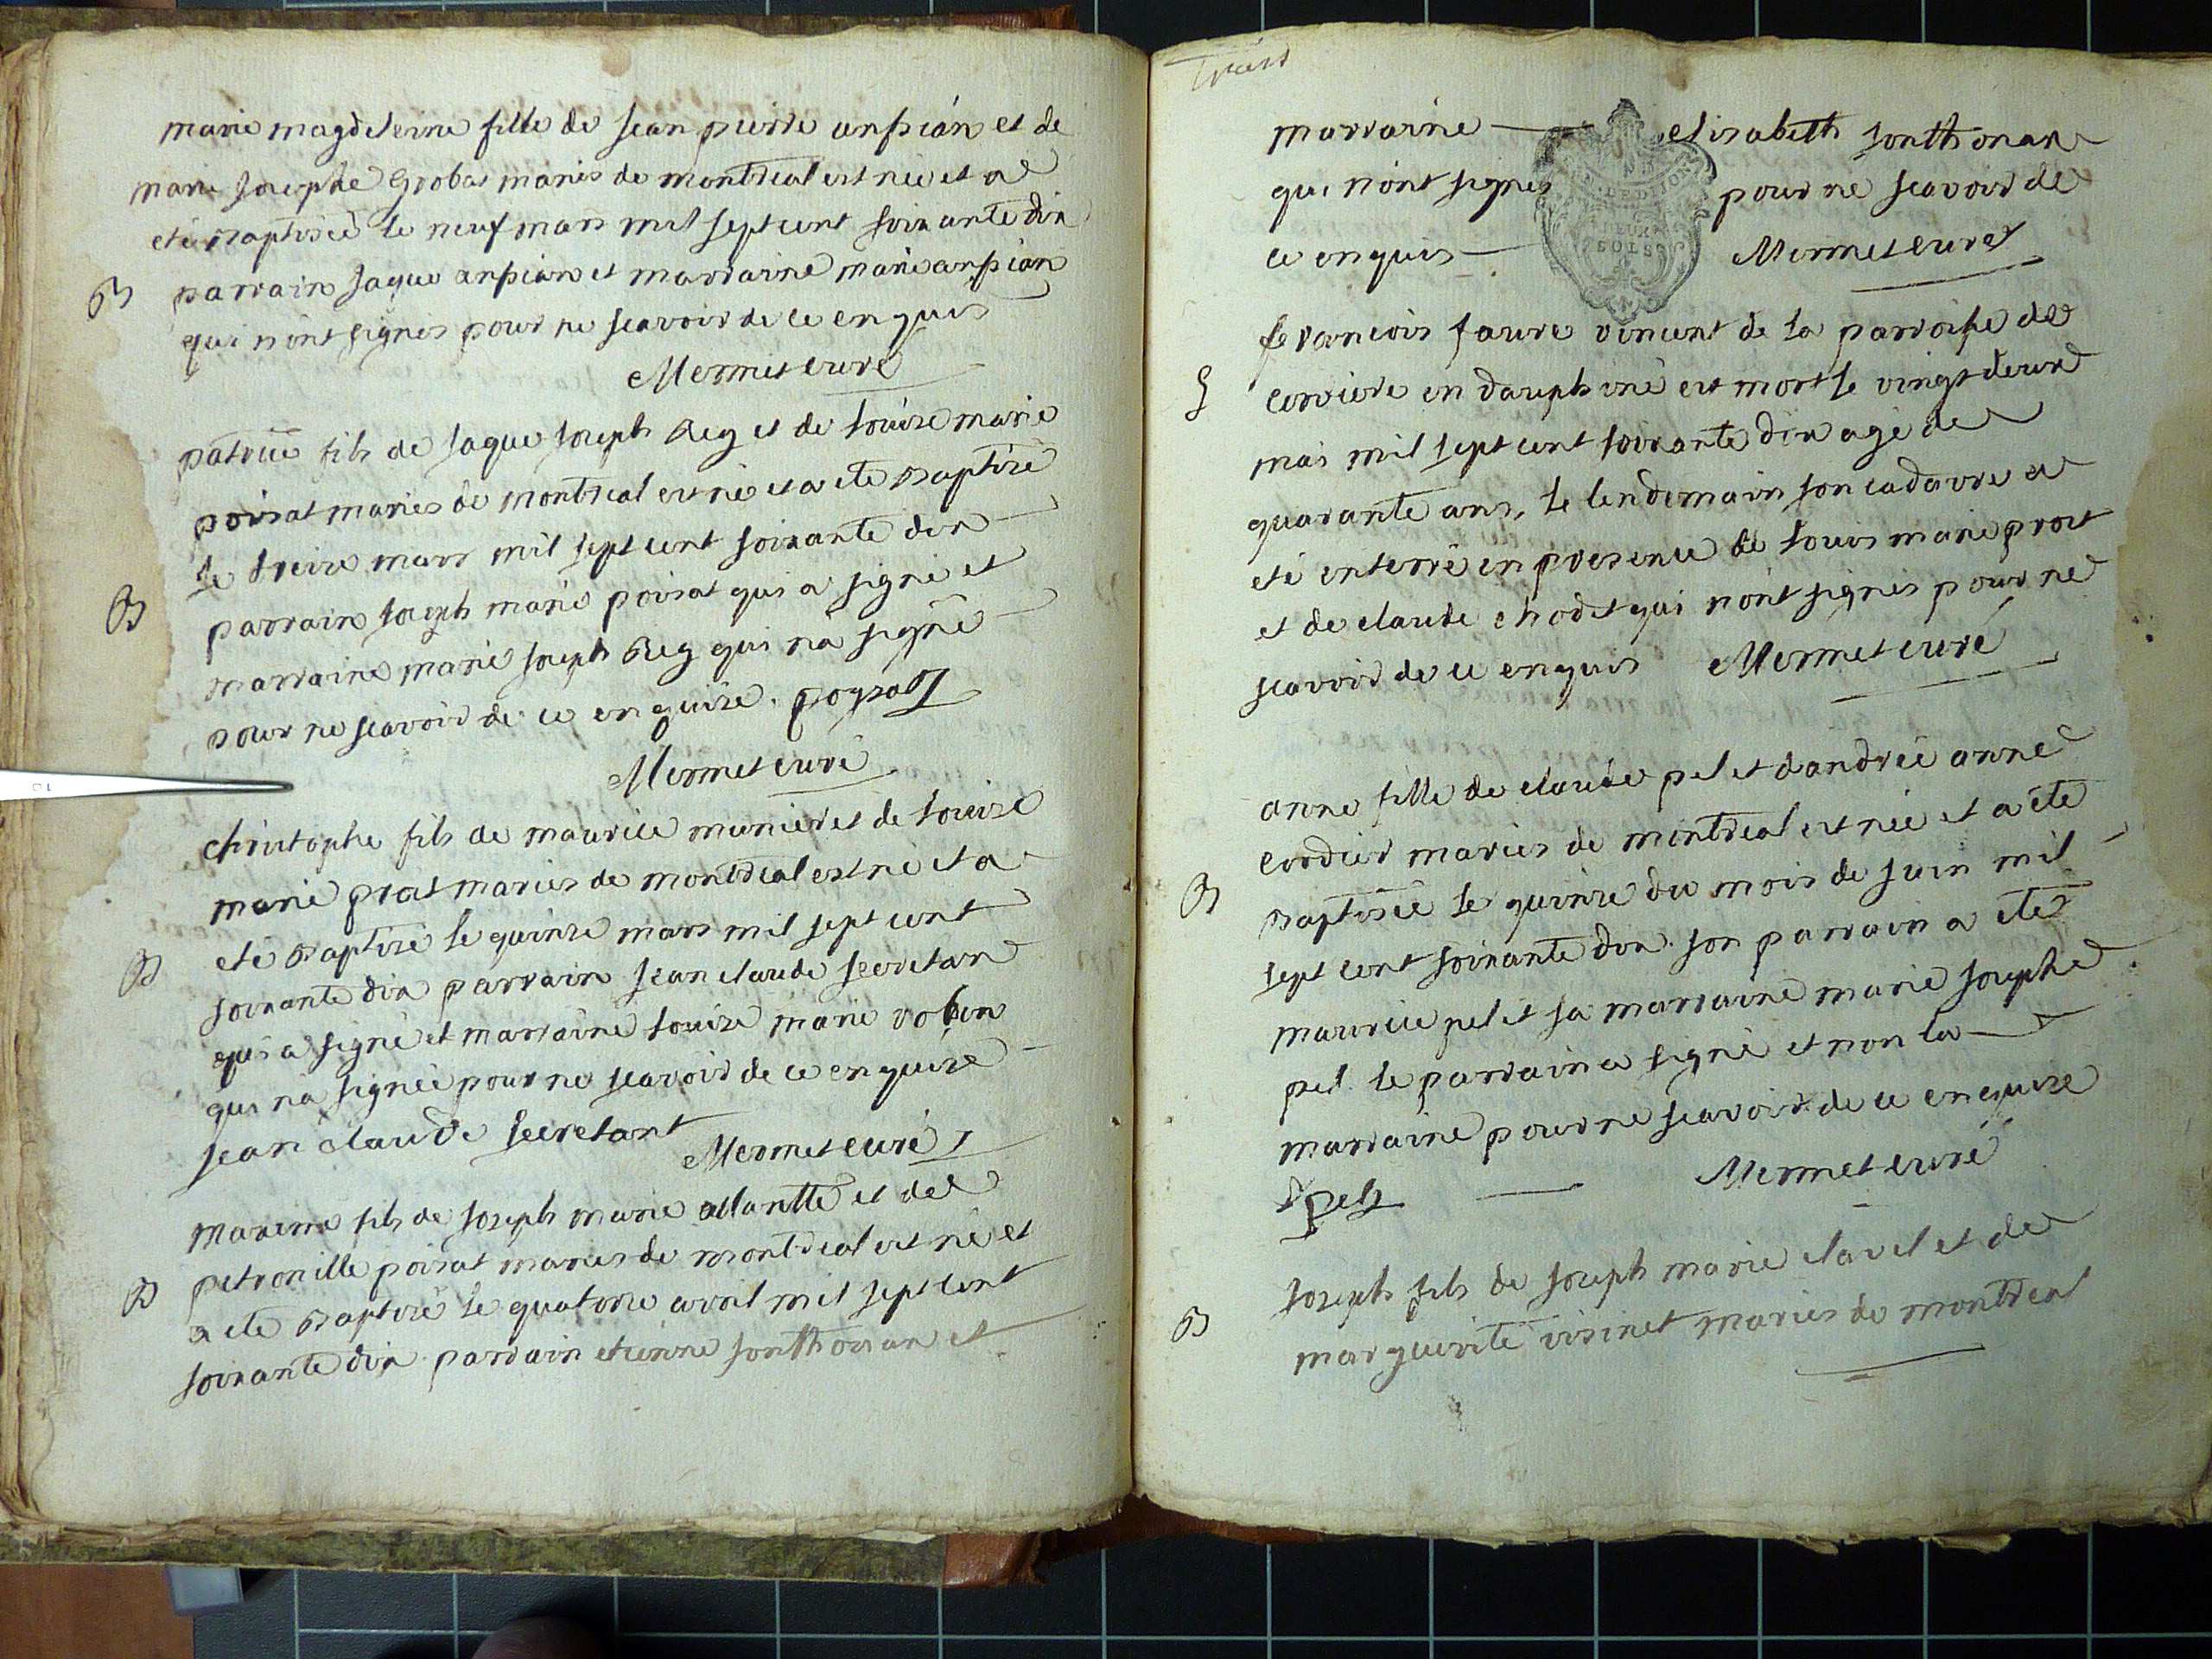 marie magdeleine fille de jean pierre anpian et de
marie josephe Grobas mariés de montreal est née et a
eté Baptisée le neuf mars mil sept cent soixante dix
B parrain jaque anpian et marraine marie anpian
qui n'ont signés pour ne scavoir de ce enquis
Mermet curé
patrice fils de jaque joseph Rey et de louise marie
poisat mariés de montreal est né et a eté Baptisé
le treize mars mil sept cent soixante dix
B parrain joseph marie poisat qui a signé et
marraine marie joseph Rey qui n'a signé
pour ne scavoir de ce enquise. poysat
Mermet curé
christophe fils de maurice munier et de louise
marie prost mariés de montreal est né et a
eté Baptisé le quinze mars mil sept cent
B soixante dix parrain jean claude secretan
qui a signé et marraine louise marie robin
qui n'a signée pour ne scavoir de ce enquise
jean claude secretant
Mermet curé
maxime fils de joseph marie allantte et de
petronille poisat mariés de montreal est né et
B a eté Baptisé le quatorze avril mil sept cent
soixante dix parrain etienne sonthonax et
Trois
marraine elisabeth sonthonax
qui n'ont signés pour ne scavoir de
ce enquis Mermet curé
DEUX
SOLS
francois faure vincent de la parroisse de
S cerviere en dauphiné est mort le vingt deux
mai mil sept cent soixante dix agé de
quarante ans, le lendemain son cadavre a
eté enterré en presence de louis marie prost
et de claude chodet qui n'ont signés pour ne
scavoir de ce enquis Mermet curé
anne fille de claude pelet d'andrée anne
cordier mariés de montreal est née et a eté
B Baptisée le quinze du mois de juin mil
sept cent soixante dix. son parrain a eté
maurice pel et sa marraine marie josephe
pel. le parrain a signé et non la
marraine pour ne scavoir de ce enquise
pel Mermet curé
B joseph fils de joseph marie clavel et de
marguerite visinet mariés de montreal